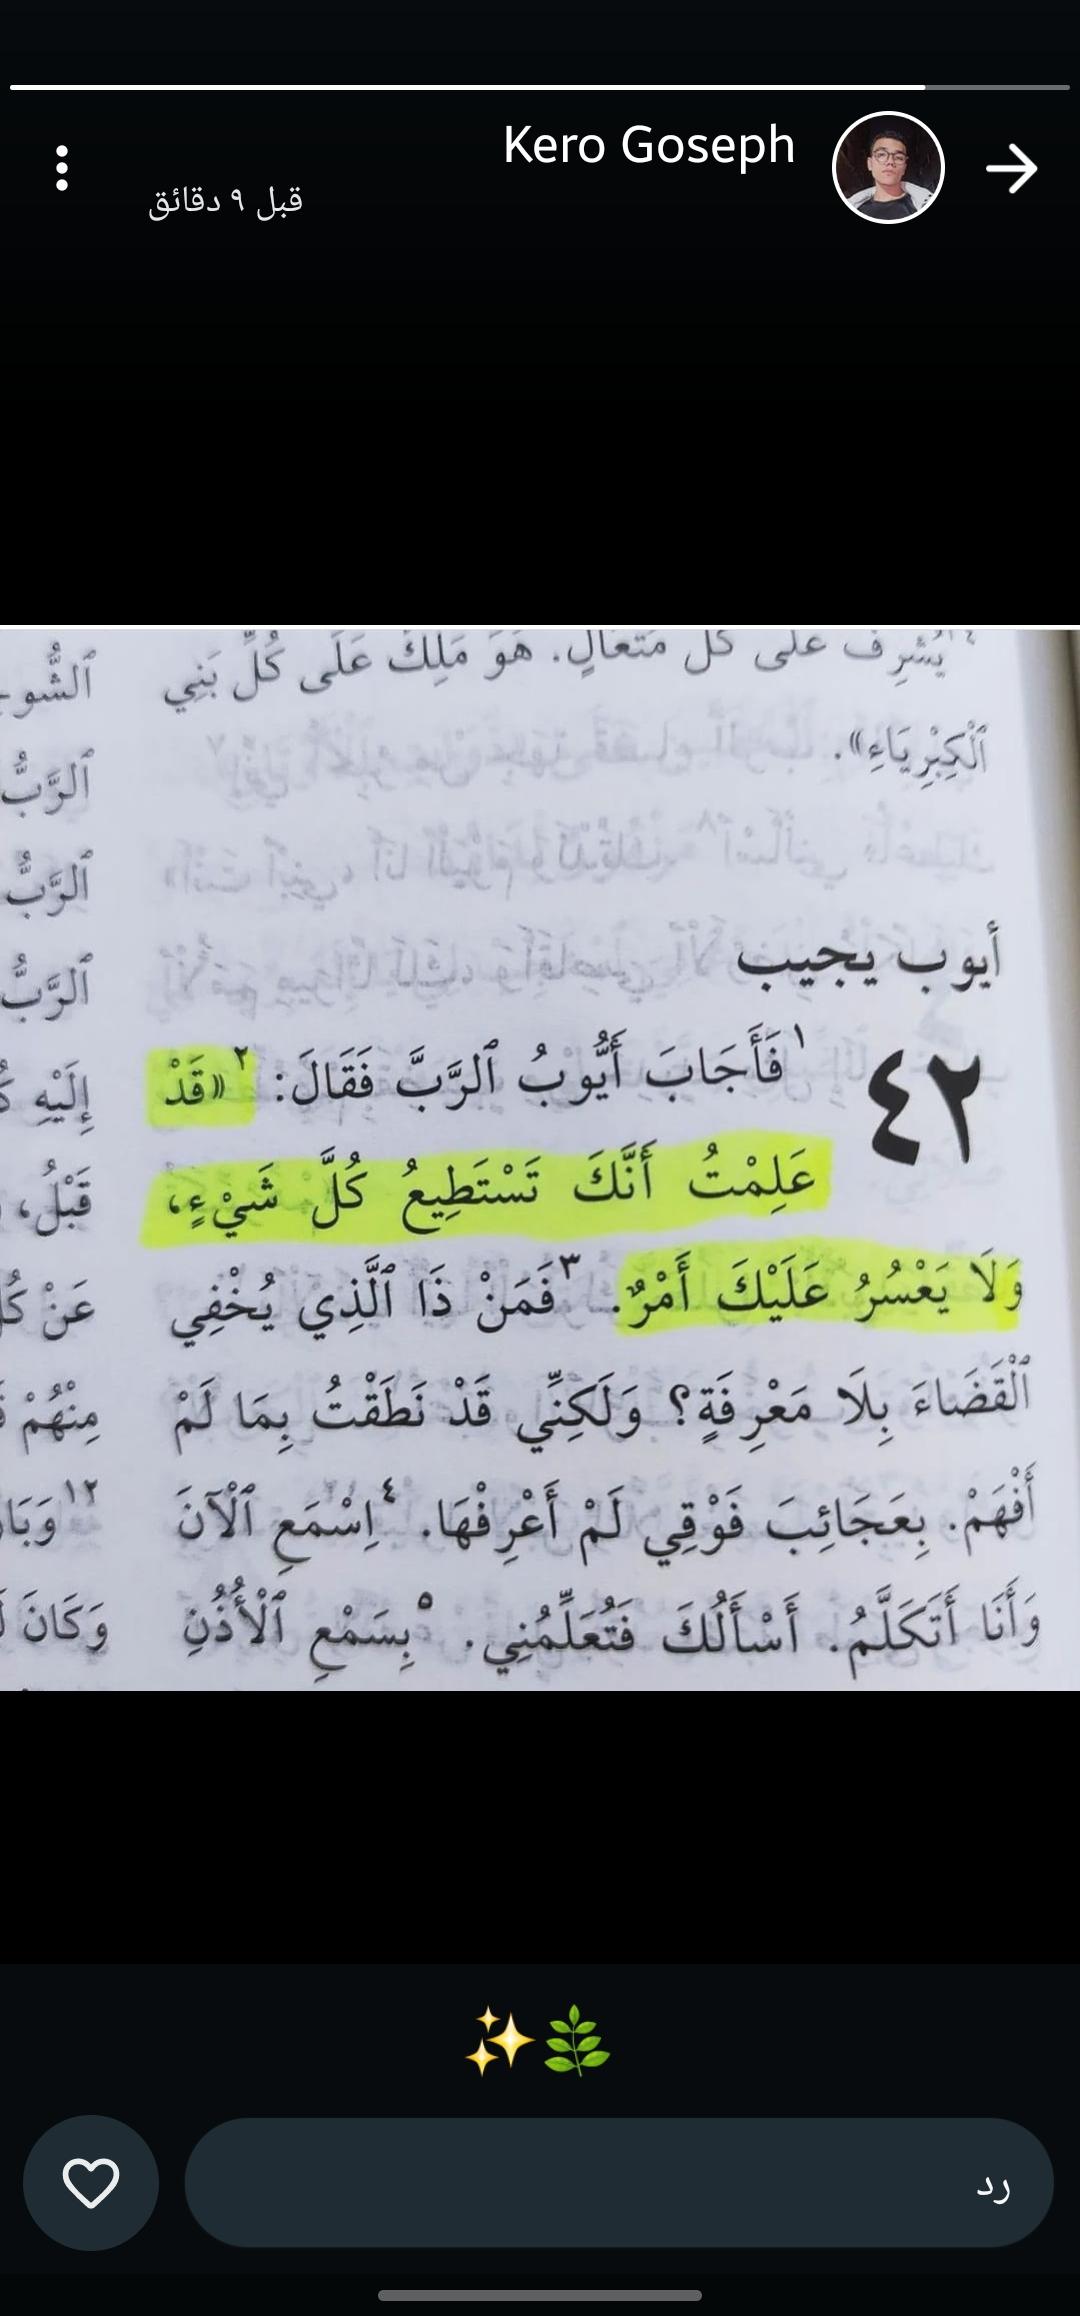 Kero Goseph
قبل ٩ دقائق
يُشْرِفُ عَلَى كُلِّ مُتَعَالٍ. هُوَ مَلِكٌ عَلَى كُلِّ بَنِي
ٱلْكِبْرِيَاءِ».
أيوب يجيب
٤٢
١ فَأَجَابَ أَيُّوبُ ٱلرَّبَّ فَقَالَ: ٢ «قَدْ
عَلِمْتُ أَنَّكَ تَسْتَطِيعُ كُلَّ شَيْءٍ،
وَلَا يَعْسُرُ عَلَيْكَ أَمْرٌ. ٣ فَمَنْ ذَا ٱلَّذِي يُخْفِي
ٱلْقَضَاءَ بِلَا مَعْرِفَةٍ؟ وَلَكِنِّي قَدْ نَطَقْتُ بِمَا لَمْ
أَفْهَمْ. بِعَجَائِبَ فَوْقِي لَمْ أَعْرِفْهَا. ٤ اِسْمَعِ ٱلْآنَ
وَأَنَا أَتَكَلَّمُ. أَسْأَلُكَ فَتُعَلِّمُنِي. ٥ بِسَمْعِ ٱلْأُذُنِ
ٱلرَّبُّ
ٱلرَّبُّ
ٱلرَّبُّ
إِلَيْهِ
قَبْلُ،
عَنْ
مِنْهُمْ
١٢
وَكَانَ
✨🌿
رد